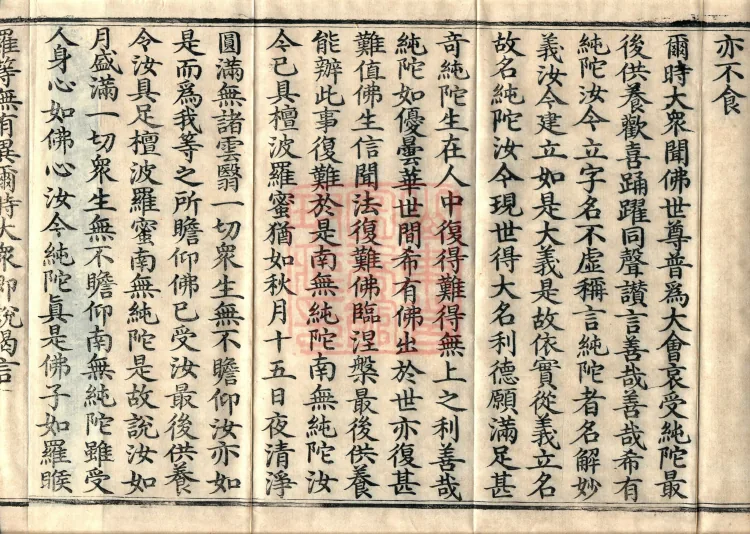 亦不食
爾時大衆聞佛世尊普爲大會哀受純陀最
後供養歡喜踊躍同聲讃言善哉善哉希有
純陀汝今立字名不虛稱言純陀者名解妙
義汝今建立如是大義是故依實從義立名
故名純陀汝今現世得大名利德願滿足甚
奇純陀生在人中復得難得無上之利善哉
純陀如優曇華世間希有佛出於世亦復甚
難值佛生信聞法復難佛臨涅槃最後供養
能辦此事復難於是南無純陀南無純陀汝
今已具檀波羅蜜猶如秋月十五日夜清淨
圓滿無諸雲翳一切衆生無不瞻仰汝亦如
是而爲我等之所瞻仰佛已受汝最後供養
令汝具足檀波羅蜜南無純陀是故說汝如
月盛滿一切衆生無不瞻仰南無純陀雖受
人身心如佛心汝今純陀眞是佛子如羅睺
羅等無有異爾時大衆卽說偈言